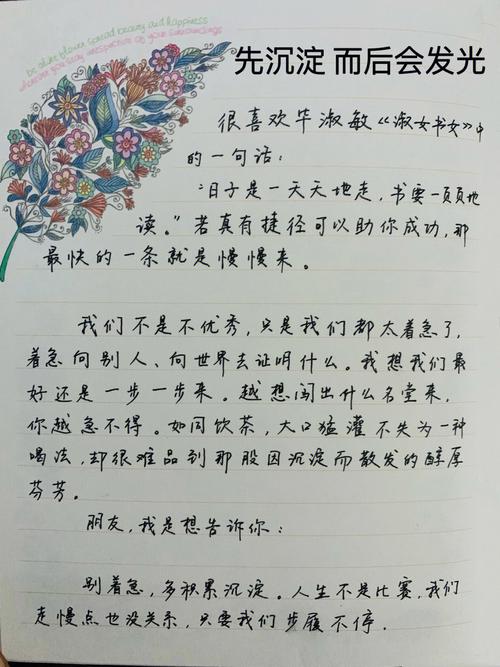 be alike flower spread beauty and happiness
wherever you stay irrespective of your surroundings
先沉淀 而后会发光
很喜欢毕淑敏《淑女书女》中
的一句话：
“日子是一天天地走，书要一页页地
读。”若真有捷径可以助你成功，那
最快的一条就是慢慢来。
我们不是不优秀，只是我们都太着急了，
着急向别人、向世界去证明什么。我想我们最
好还是一步一步来。越想闯出什么名堂来，
你越急不得。如同饮茶，大口猛灌不失为一种
喝法，却很难品到那股因沉淀而散发的醇厚
芬芳。
朋友，我是想告诉你：
别着急，多积累沉淀。人生不是比赛，我们
走慢点也没关系，只要我们步履不停.